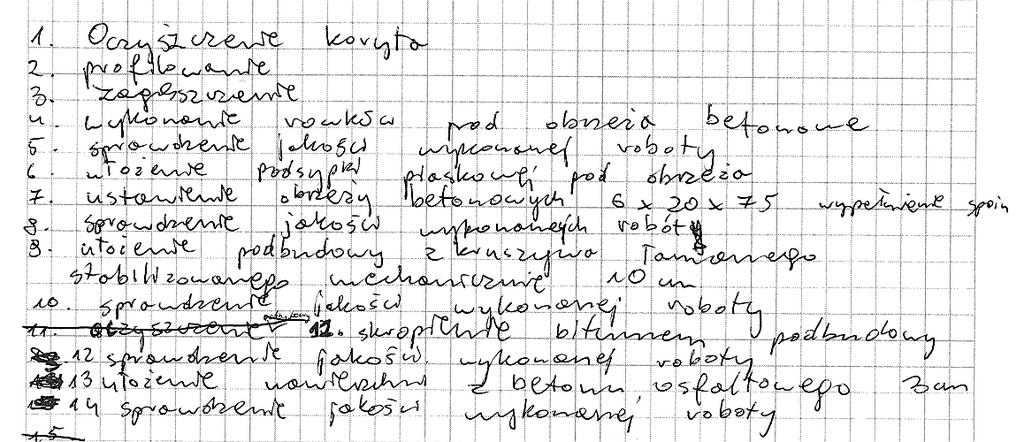 1. Oczyszczenie koryta
2. profilowanie
3. zagęszczenie
4. wykonanie rowków pod obrzeża betonowe
5. sprawdzenie jakości wykonanej roboty
6. ułożenie podsypki piaskowej pod obrzeża
7. ustawienie obrzeży betonowych 6 x 20 x 75 wypełnienie spoin
8. sprawdzenie jakości wykonanych robót
9. ułożenie podbudowy z kruszywa łamanego
stabilizowanego mechanicznie 10 cm
10. sprawdzenie jakości wykonanej roboty
11. oczyszczenie podbudowy 12. skropienie bitumem podbudowy
12 sprawdzenie jakości wykonanej roboty
13 ułożenie nawierzchni z betonu asfaltowego 3cm
14 sprawdzenie jakości wykonanej roboty
15